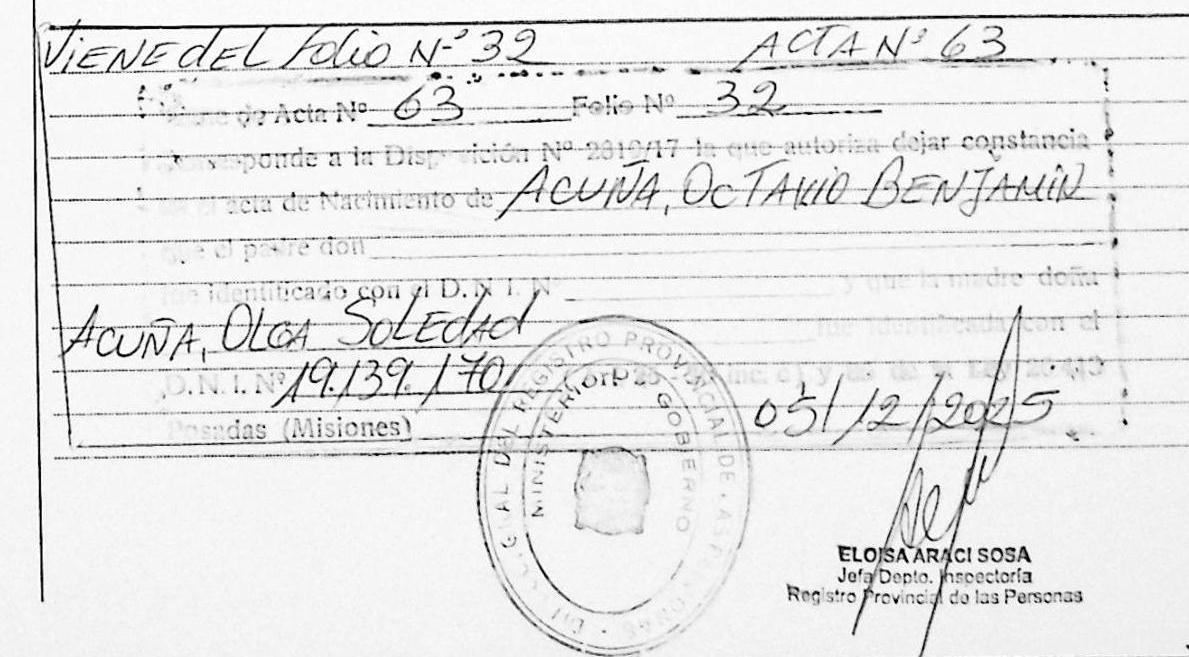 VIENE dEL Folio N-º 32 ACTA Nº 63
Viene de Acta Nº 63 Folio Nº 32
Corresponde a la Disposición Nº 2819/17 la que autoriza dejar constancia
en el acta de Nacimiento de ACUÑA, OCTAVIO BENJAMÍN
que el padre don
fue identificado con el D. N. I. Nº y que la madre doña
ACUÑA, OLGA SOLEDAD fue identificada con el
D. N. I. Nº 19.139.170 inc. c) y de la Ley 26.413
Posadas (Misiones) 05/12/2025
REGISTRO PROVINCIAL DE LAS PERSONAS
MINISTERIO DE GOBIERNO
ELOISA ARACI SOSA
Jefa Depto. Inspectoría
Registro Provincial de las Personas